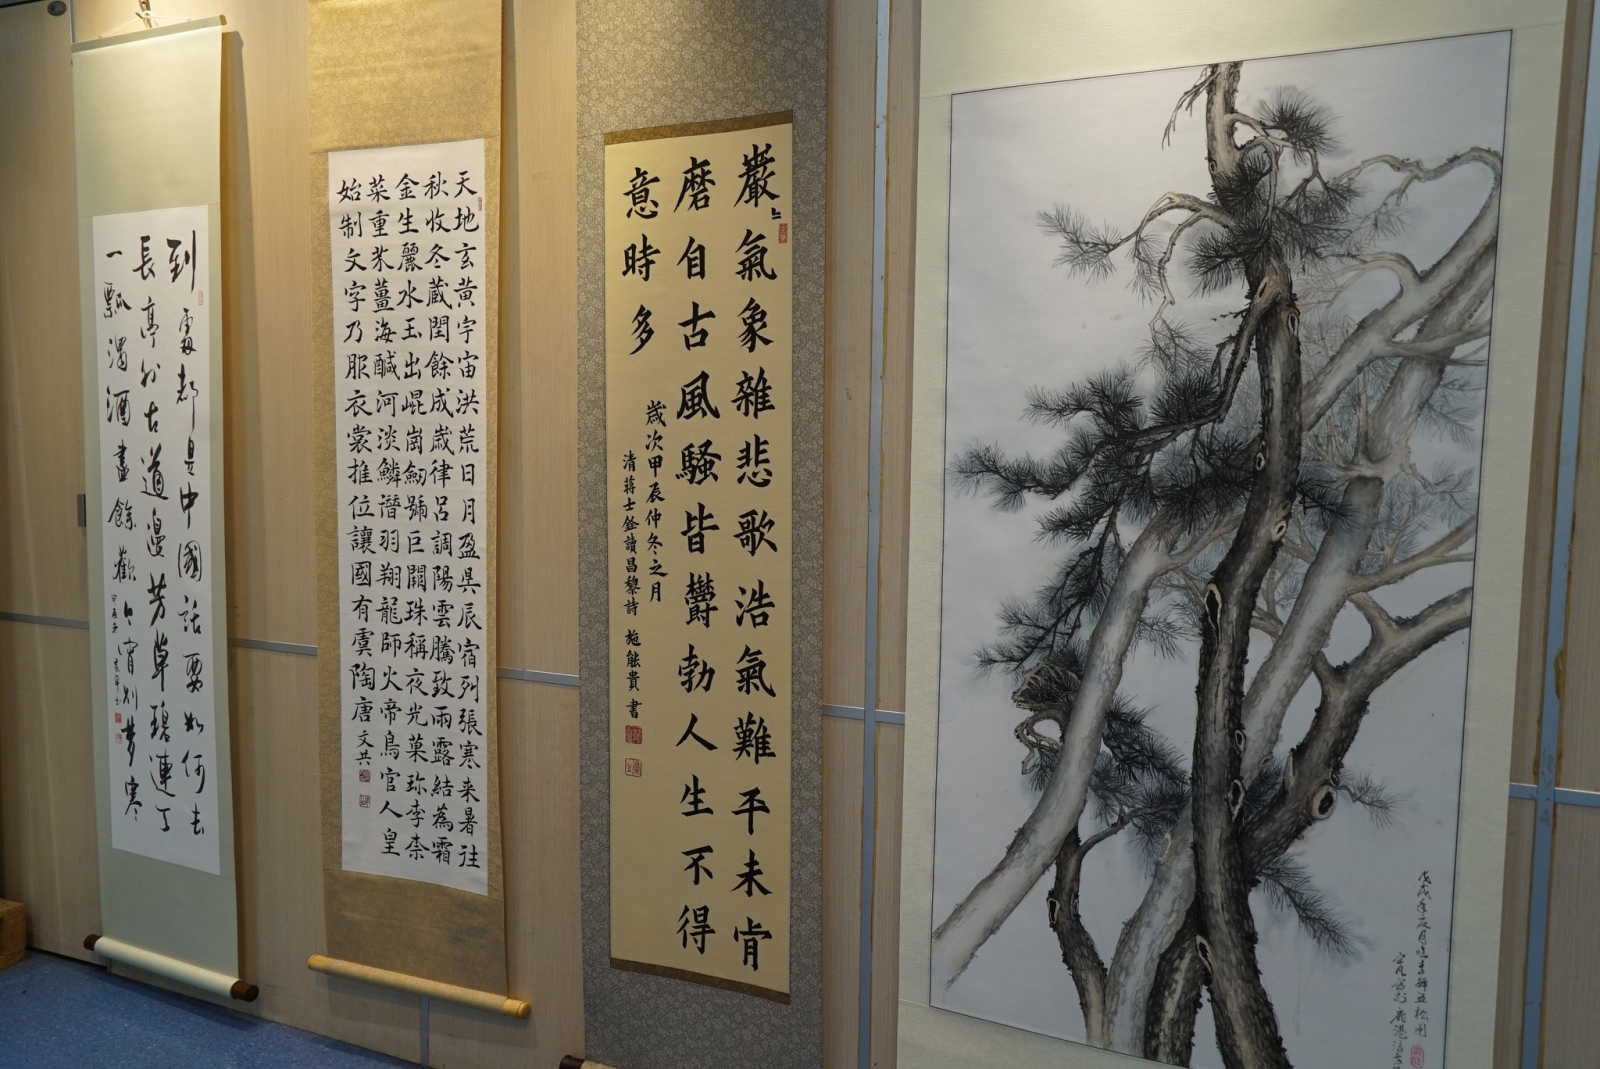 到處都是中國話要如何去
長亭外古道邊芳草碧連天
一瓢濁酒盡餘歡今宵別夢寒
天地玄黃宇宙洪荒日月盈昃辰宿列張寒来暑往
秋收冬蔵閏餘成歲律呂調陽雲騰致雨露結為霜
金生麗水玉出崐崗劔號巨闕珠稱夜光菓珎李柰
菜重芥薑海醎河淡鱗潛羽翔龍師火帝鳥官人皇
始制文字乃服衣裳推位讓國有虞陶唐 文共
巖〻氣象雜悲歌浩氣難平未肯
磨自古風騷皆欝勃人生不得
意時多
歲次甲辰仲冬之月
清蔣士銓讀昌黎詩 施能貴書
戊戌年夏月 松圖